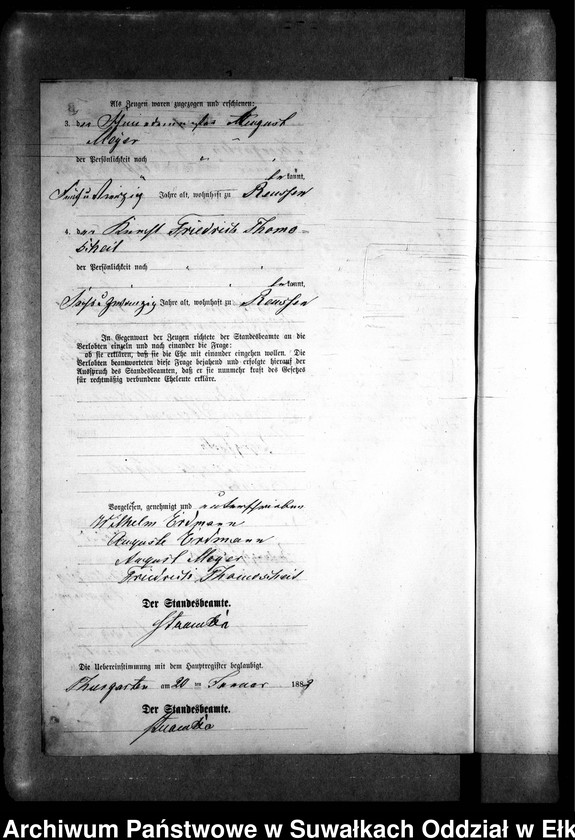 Als Zeugen waren zugezogen und erschienen:
3. der August
Meyer
der Persönlichkeit nach
kannt,
Fünf u Vierzig Jahre alt, wohnhaft zu Reussen
4. der Knecht Friedrich Thomo-
scheit
der Persönlichkeit nach
kannt,
Sechs u Zwanzig Jahre alt, wohnhaft zu Reussen
In Gegenwart der Zeugen richtete der Standesbeamte an die
Verlobten einzeln und nach einander die Frage:
ob sie erklären, daß sie die Ehe mit einander eingehen wollen. Die
Verlobten beantworteten diese Frage bejahend und erfolgte hierauf der
Ausspruch des Standesbeamten, daß er sie nunmehr kraft des Gesetzes
für rechtmäßig verbundene Eheleute erkläre.
Vorgelesen, genehmigt und unterschrieben
Wilhelm Erdmann
Auguste Erdmann
August Meyer
Friedrich Thomoscheit
Der Standesbeamte.
Die Uebereinstimmung mit dem Hauptregister beglaubigt.
am 20 ten Januar 1889
Der Standesbeamte.
Archiwum Państwowe w Suwałkach Oddział w Ełk